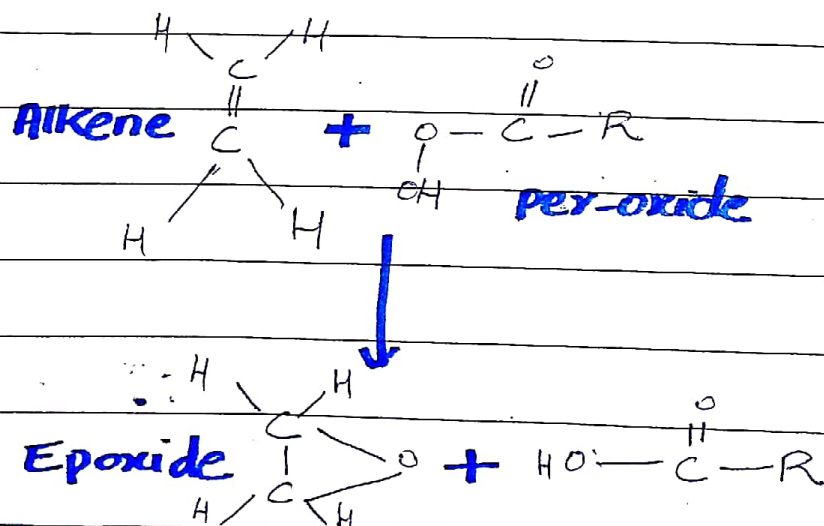 H H
C O
||  ||
Alkene C + O — C — R
OH per-oxide
H H
H H
C O
Epoxide | O + HO — C — R
C
H H